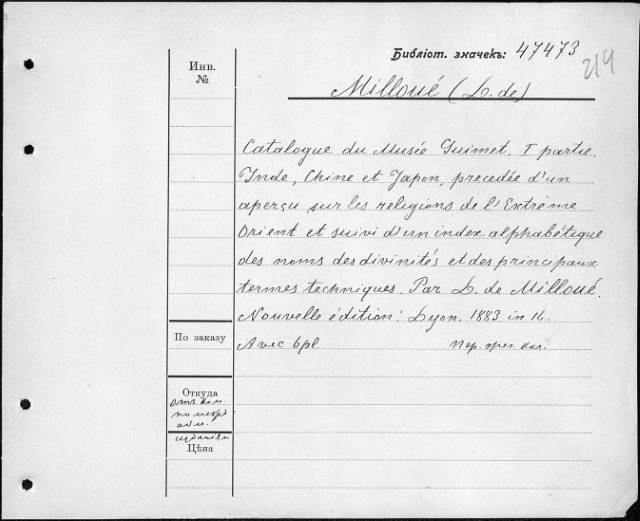 Библіот. значекъ: 47473
214
Инв.
№
Milloué (L. de)
Catalogue du Musée Guimet. I partie.
Inde, Chine et Japon, precedée d'un
aperçu sur les religions de l'Extrême
Orient et suivi d'un index alphabétique
des noms des divinités et des principaux
termes techniques. Par L. de Milloué.
Nouvelle édition. Lyon. 1883 in 16.
По заказу
Avec 6 pl.
Откуда
Цѣна